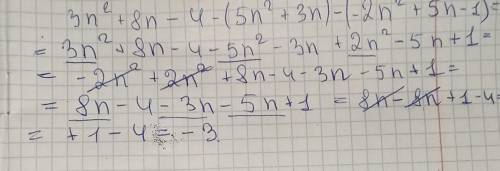 3n² + 8n - 4 - (5n² + 3n) - (-2n² + 5n - 1) =
= 3n² + 8n - 4 - 5n² - 3n + 2n² - 5n + 1 =
= - 2n² + 2n² + 8n - 4 - 3n - 5n + 1 =
= 8n - 4 - 3n - 5n + 1 = 8n - 8n + 1 - 4 =
= + 1 - 4 = - 3